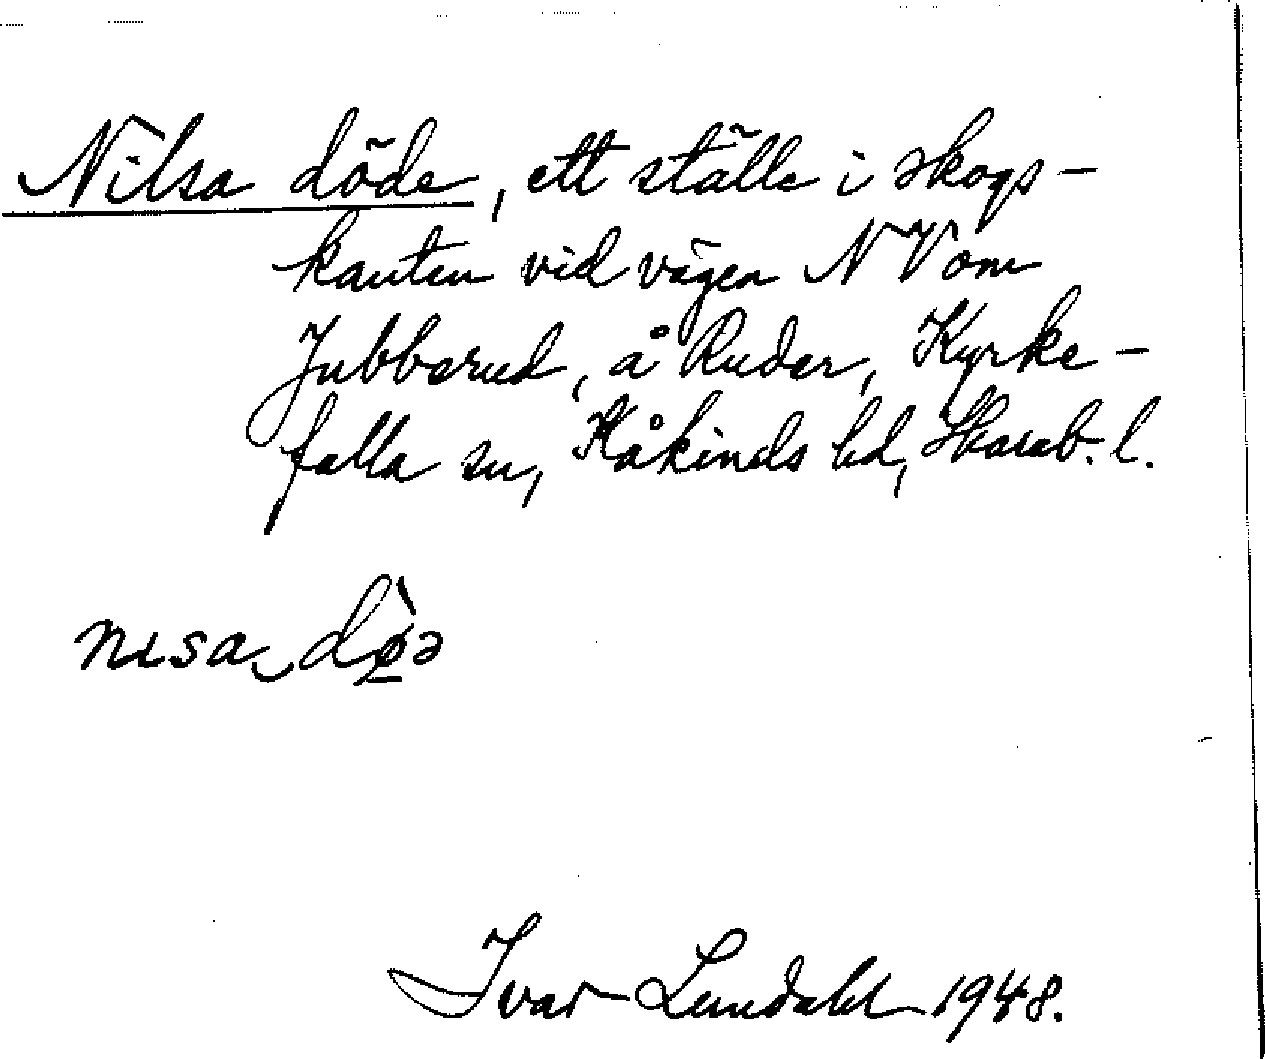 Nilsa döde, ett ställe i skogs-
kanten vid vägen NV om
Jubbarud, å Ruder, Kyrke-
falla sn, Kåkinds hd, Skarab. l.
nısa‿dø̀ə
Ivar Lundahl 1948.